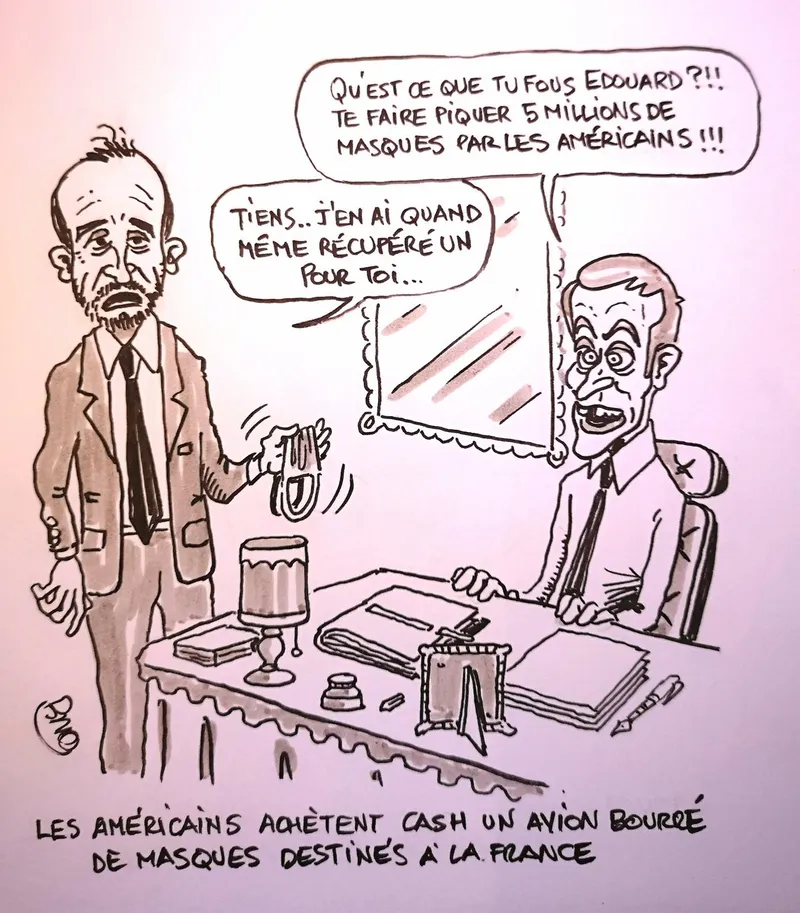 QU'EST CE QUE TU FOUS EDOUARD ?!!
TE FAIRE PIQUER 5 MILLIONS DE
MASQUES PAR LES AMÉRICAINS !!!
TIENS.. J'EN AI QUAND
MÊME RÉCUPÉRÉ UN
POUR TOI...
BNO
LES AMÉRICAINS ACHÈTENT CASH UN AVION BOURRÉ
DE MASQUES DESTINÉS À LA FRANCE